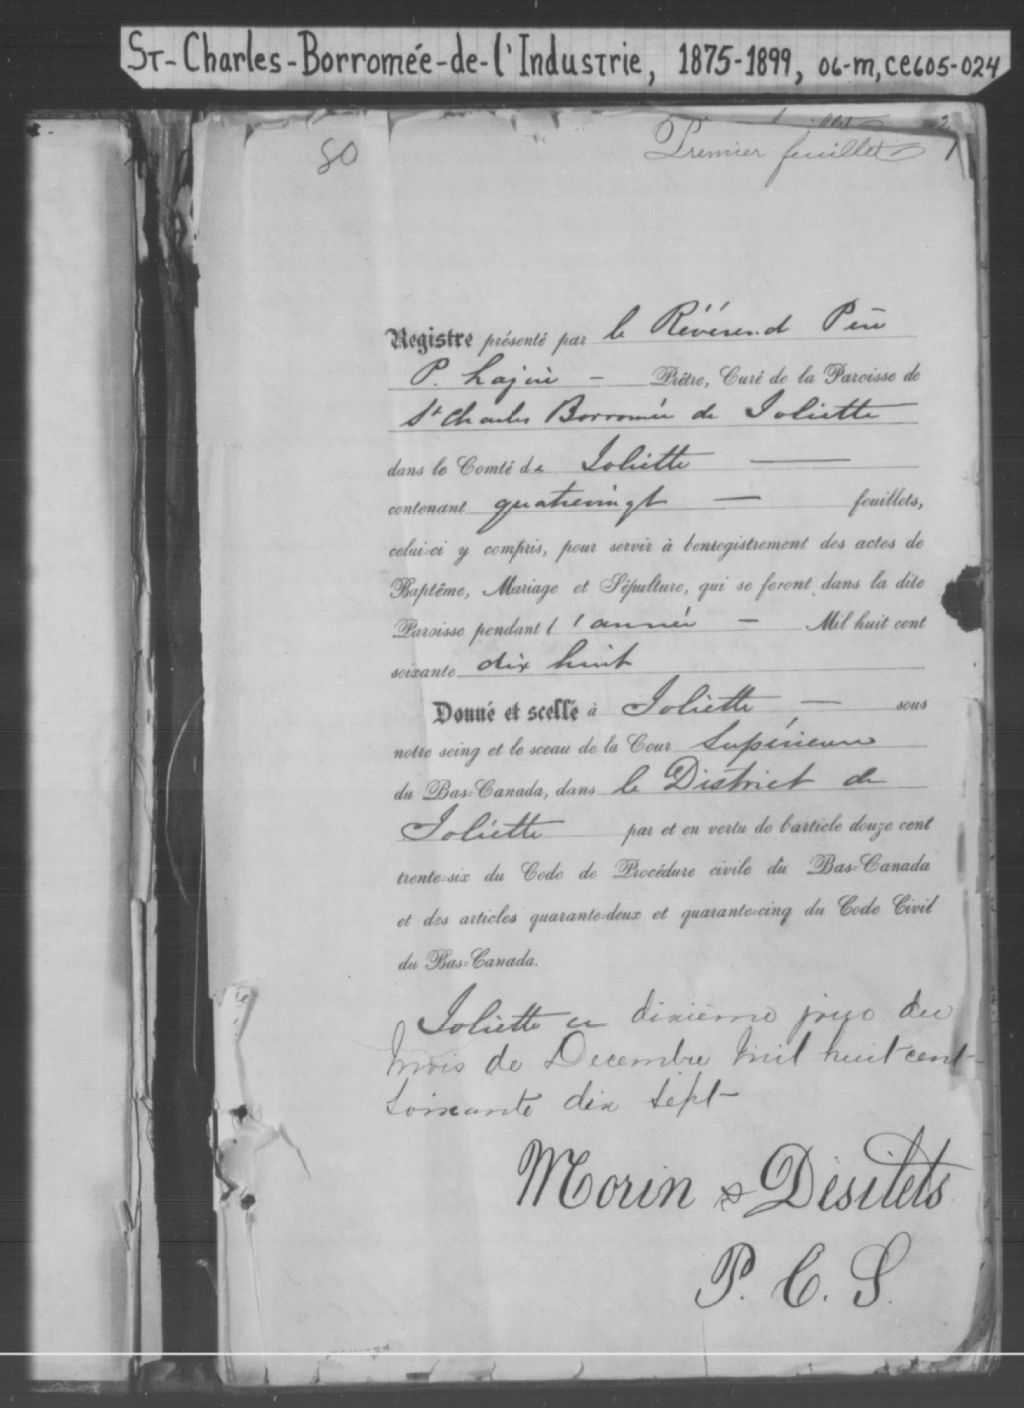 St-Charles-Borromée-de-l'Industrie, 1875-1899, 06-m, CE605-024
80
Premier feuillet
Registre présenté par le Révérend Père
P. Lajoie — Prêtre, Curé de la Paroisse de
St Charles Borromée de Joliette
dans le Comté de Joliette —
contenant quatrevingt — feuillets,
celui-ci y compris, pour servir à l'enregistrement des actes de
Baptême, Mariage et Sépulture, qui se feront dans la dite
Paroisse pendant l'année — Mil huit cent
soixante dix huit
Donné et scellé à Joliette — sous
notre seing et le sceau de la Cour Supérieure
du Bas-Canada, dans le District de
Joliette par et en vertu de l'article douze cent
trente-six du Code de Procédure civile du Bas-Canada
et des articles quarante-deux et quarante-cinq du Code Civil
du Bas-Canada.
Joliette ce dixième jour du
mois de Decembre mil huit cent
soixante dix sept
Morin & Désilets
P. C. S.